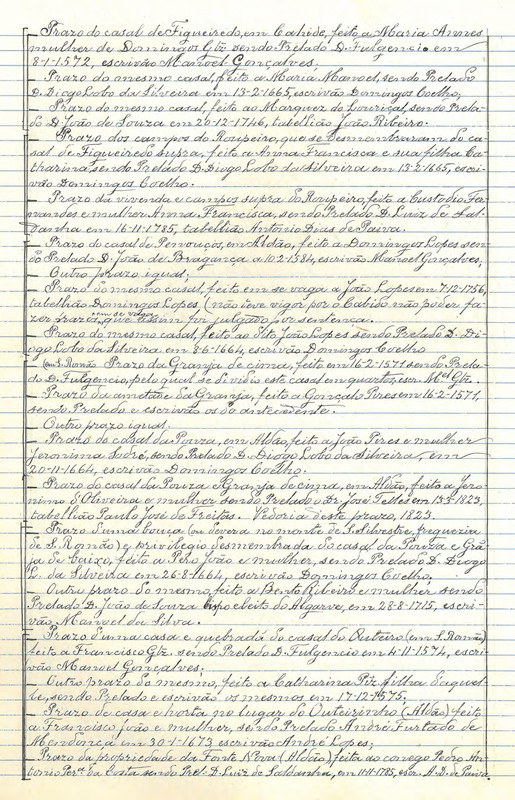 — Prazo do casal de Figueiredo, em Cahide, feito a Maria Annes
mulher de Domingos Glz. sendo Prelado D. Fulgencio em
8-1-1572, escrivão Manoel Gonçalves.
— Prazo do mesmo casal, feito a Maria Manoel, sendo Prelado
D. Diogo Lobo da Silveira em 13-2-1665, escrivão Domingos Coelho;
— Prazo do mesmo casal, feito ao Marquez do Louriçal, sendo Prela-
do D. João de Souza em 20-12-1746, tabellião João Ribeiro.
— Prazo dos campos do Roupeiro, que se desmembraram do ca-
sal de Figueiredo supra, feito a Anna Francisca e sua filha Ca-
tharina, sendo Prelado D. Diogo Lobo da Silveira em 13-2-1665, escri-
vão Domingos Coelho.
— Prazo da vivenda e campos supra do Roupeiro, feito a Custodio Fer-
nandes e mulher Anna Francisca, sendo Prelado D. Luiz de Sal-
danha em 16-11-1785, tabellião Antonio Dias de Paiva.
— Prazo do casal de Pernouços, em Aldão, feito a Domingos Lopes sen-
do Prelado D. João de Bragança a 10-2-1584, escrivão Manoel Gonçalves;
— Outro prazo igual;
— Prazo do mesmo casal, feito em se vaga a João Lopes em 7-12-1756,
tabellião Domingos Lopes (não teve vigor por o Cabido não poder fa-
zer prazos em se vaga, que assim foi julgado por sentença.
— Prazo do mesmo casal, feito ao dito João Lopes sendo Prelado D. Di-
ogo Lobo da Silveira em 8-6-1664, escrivão Domingos Coelho
— (em S. Romão) Prazo da Granja de cima, feito em 16-2-1571 sendo Prela-
do D. Fulgencio, pelo qual se dividio este casal em quartos, escr. Mel Glz.
— Prazo da ametade da Granja, feito a Gonçalo Pires em 16-2-1571,
sendo Prelado e escrivão os do antecedente.
— Outro prazo igual.
— Prazo do casal da Pouza, em Aldão, feito a João Peres e mulher
Jeronima Sodré, sendo Prelado D. Diogo Lobo da Silveira, em
20-11-1664, escrivão Domingos Coelho.
— Prazo do casal da Pouza e Granja de cima, em Aldão, feito a Jero-
nimo d'Oliveira e mulher sendo Prelado Dr. José Telles em 13-5-1823,
tabellião Paulo José de Freitas. Vedoria deste prazo, 1823.
— Prazo d'uma bouça (ou devera no monte de S. Silvestre, freguezia
de S. Romão) e privilegio desmembrada do casal da Pouza e Gran-
ja de baixo, feito a Pero João e mulher, sendo Prelado D. Diogo
L. da Silveira em 26-8-1664, escrivão Domingos Coelho;
— Outro prazo do mesmo, feito a Bento Ribeiro e mulher sendo
Prelado D. João de Souza bispo eleito do Algarve, em 28-8-1715, escri-
vão Manoel da Silva.
— Prazo d'uma casa e quebrada do casal do Outeiro (em S. Romão)
feito a Francisco Glz. sendo Prelado D. Fulgencio em 4-11-1574, escri-
vão Manoel Gonçalves.
— Outro prazo do mesmo, feito a Catharina Piz filha daquel-
le, sendo Prelado e escrivão os mesmos em 17-12-1575.
— Prazo de casa e horta no lugar do Outeirinho (Aldão) feito
a Francisco João e mulher, sendo Prelado André Furtado de
Mendonça em 30-1-1673 escrivão André Lopes;
— Prazo da propriedade da Fonte Nova (Aldão), feito ao conego Pedro An-
tonio Perª da Costa sendo Prel. D. Luiz de Saldanha, em 11-11-1785, escr. A. D. de Paiva.